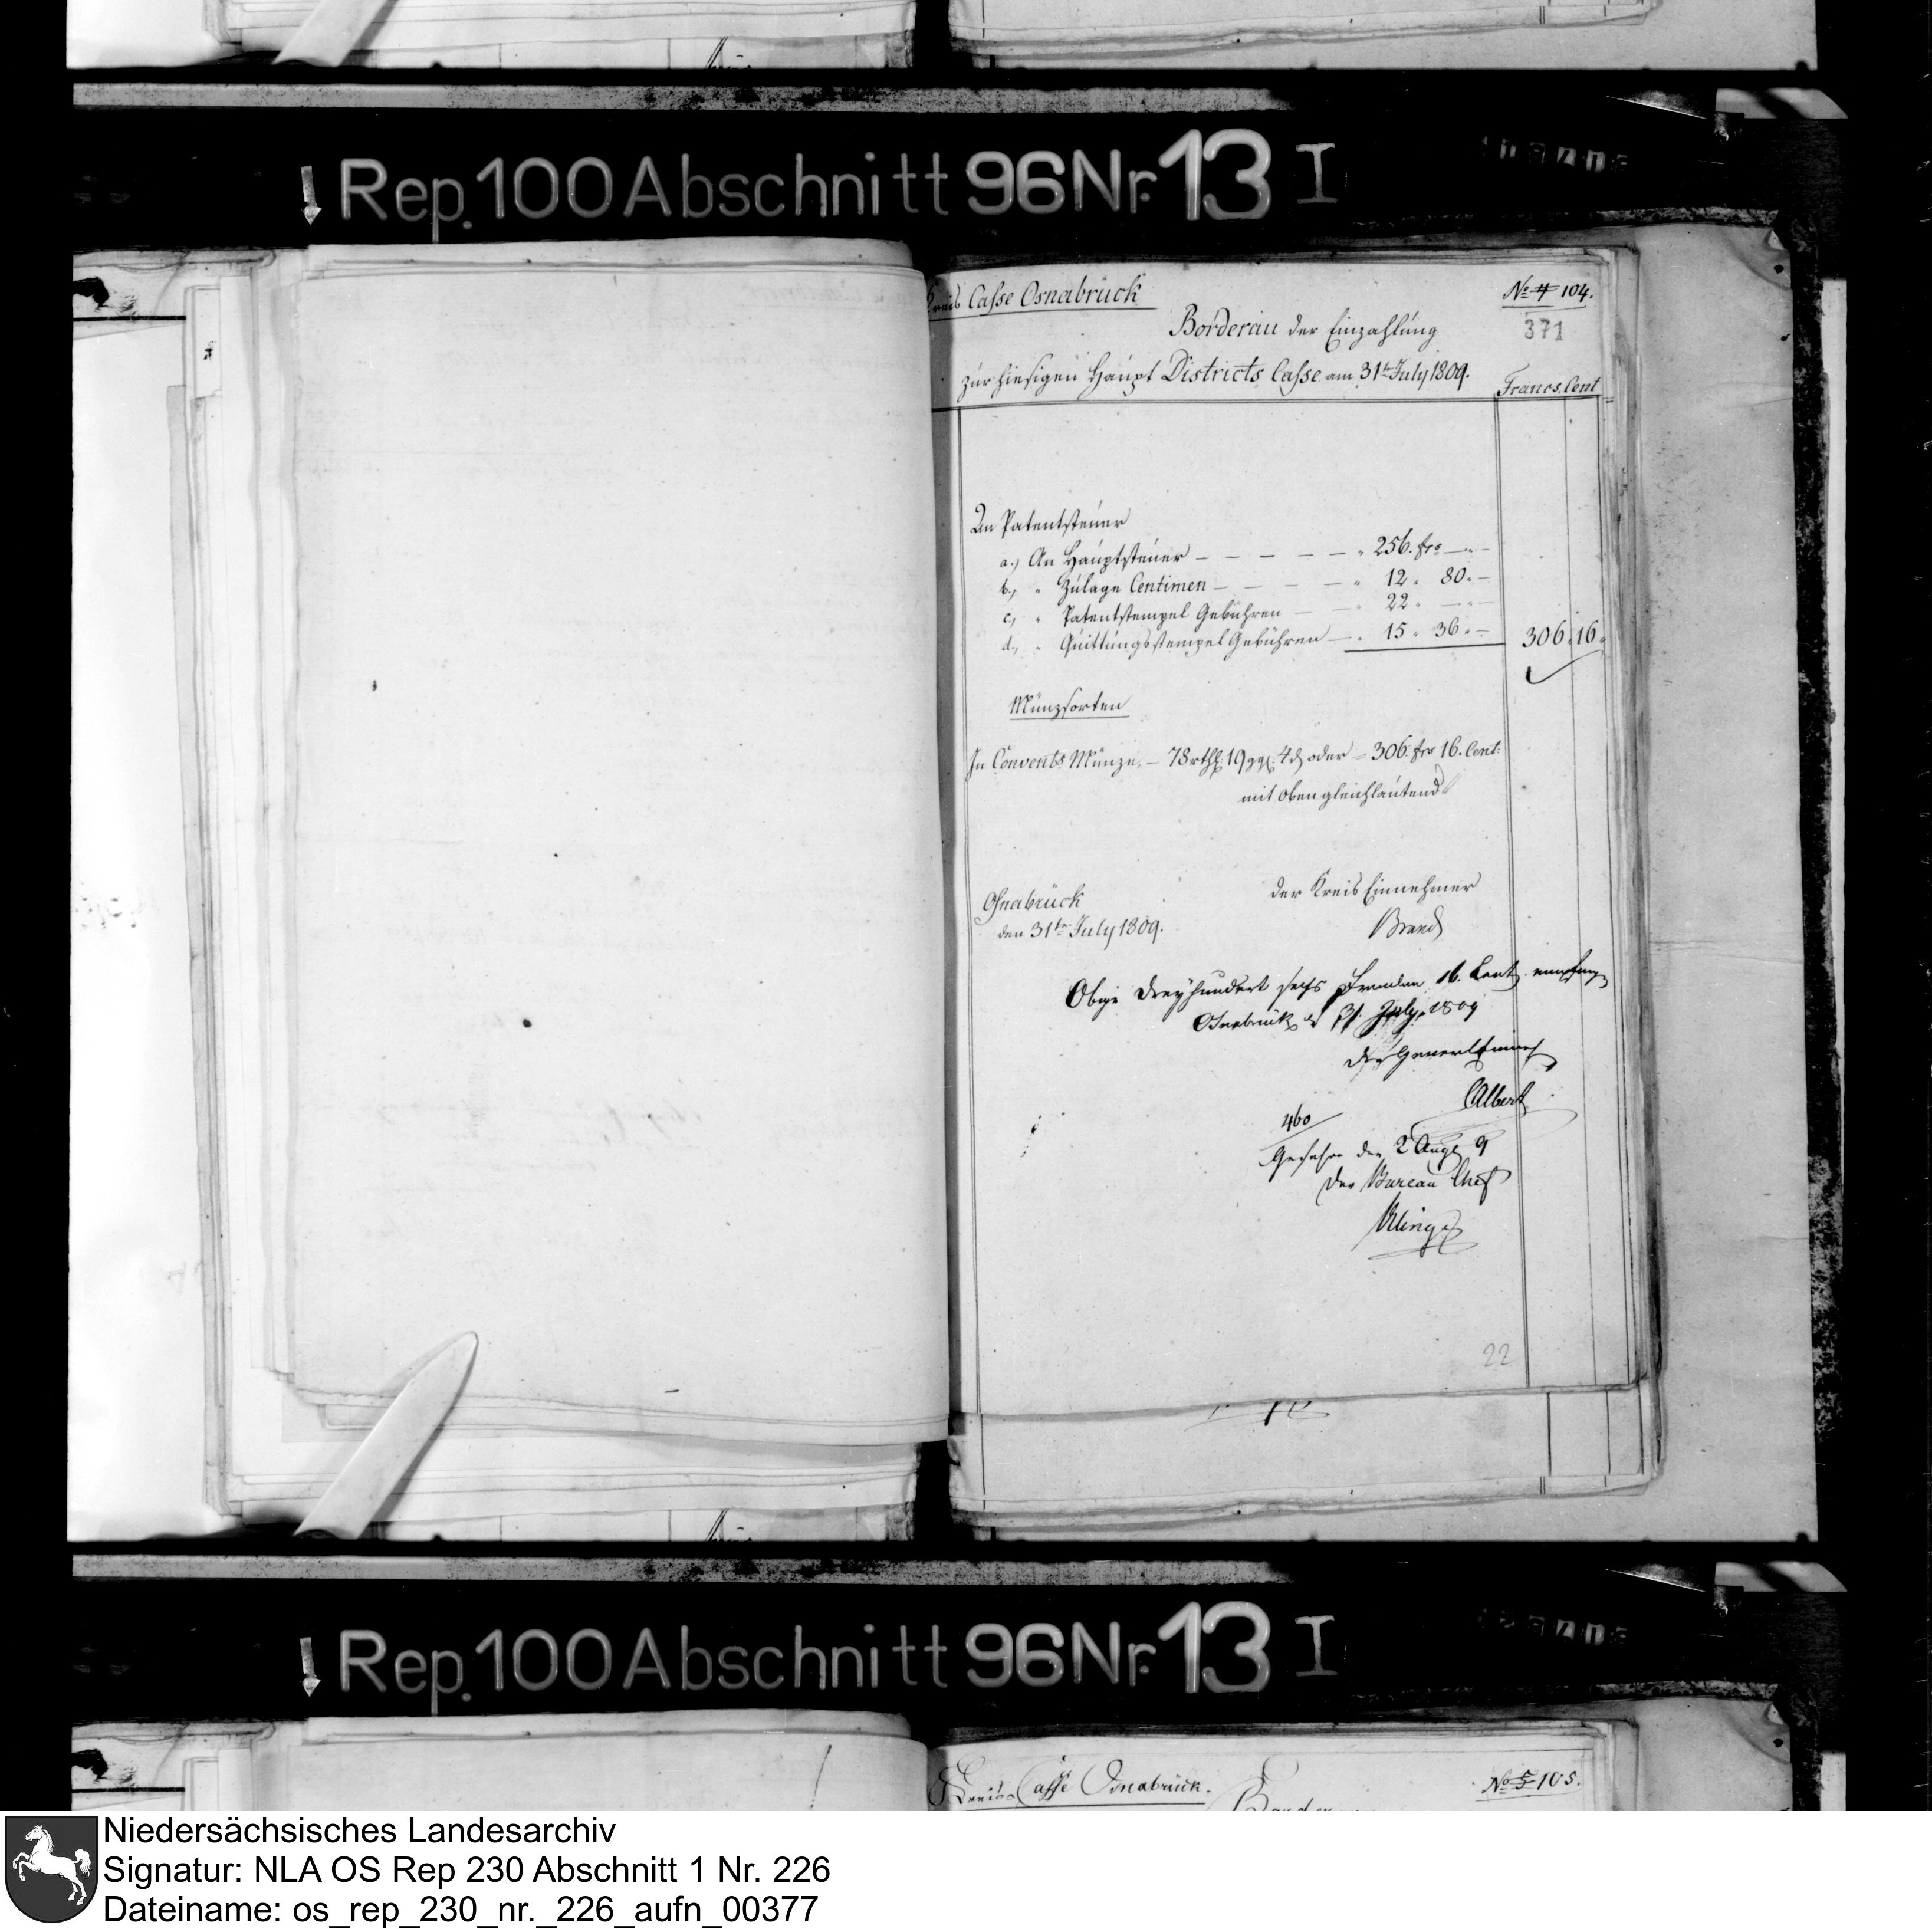 Rep. 100 Abschnitt 96 Nr. 13 I
Kreis Casse Osnabrück
No 4 104.
371
Borderau der Einzahlung
zur hiesigen Haupt Districts Casse am 31ten July 1809.
Francs. Cent
An Patentsteuer
a.) An Hauptsteuer — — — — — " 256. frs — " —
b., " Zulage Centimen — — — — " 12 " 80 " —
c, " Patentstempel Gebühren — — " 22 " — " —
d., " Quittungsstempel Gebühren — " 15 " 36 " — 306. 16.
Münzsorten
In Convents Münze, — 78 rthl. 19 ggl. 4 d oder — 306. frs 16. Cent:
mit oben gleichlautend
Osnabrück
den 31ten July 1809.
der Kreis Einnehmer
Brand
Obige dreyhundert sechs Franken 16. Cent. empfing
Osnabrück d 31. July. 1809
Der General Einneh
Albert
460
Gesehen den 2 Augt 9
Der Bureau Chef
Klinge
22
Rep. 100 Abschnitt 96 Nr. 13 I
Kreis Casse Osnabrück.
No 5 105.
Niedersächsisches Landesarchiv
Signatur: NLA OS Rep 230 Abschnitt 1 Nr. 226
Dateiname: os_rep_230_nr._226_aufn_00377